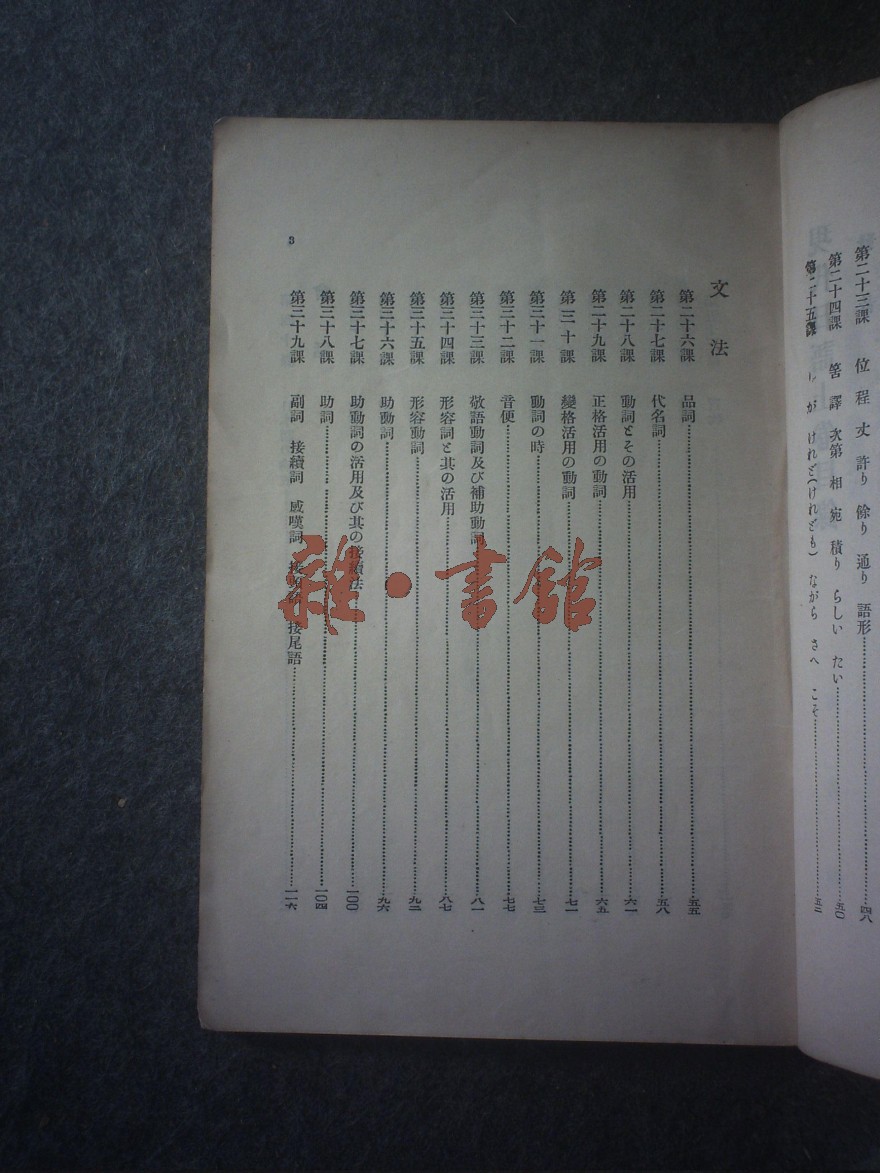 第二十三課 位 程 丈 許り 餘り 通り 語形 四八
第二十四課 筈 譯 次第 相 宛 積り らしい たい 五〇
第二十五課 が けれど(けれども) ながら さへ こそ 五二
文法
第二十六課 品詞 五五
第二十七課 代名詞 五八
第二十八課 動詞とその活用 六一
第二十九課 正格活用の動詞 六五
第三十課 變格活用の動詞 七一
第三十一課 動詞の時 七三
第三十二課 音便 七七
第三十三課 敬語動詞及び補助動詞 八一
第三十四課 形容詞と其の活用 八七
第三十五課 形容動詞 九二
第三十六課 助動詞 九六
第三十七課 助動詞の活用及び其の接續法 一〇〇
第三十八課 助詞 一〇四
第三十九課 副詞 接續詞 感嘆詞 接頭語 接尾語 一一六
3
雜·書館